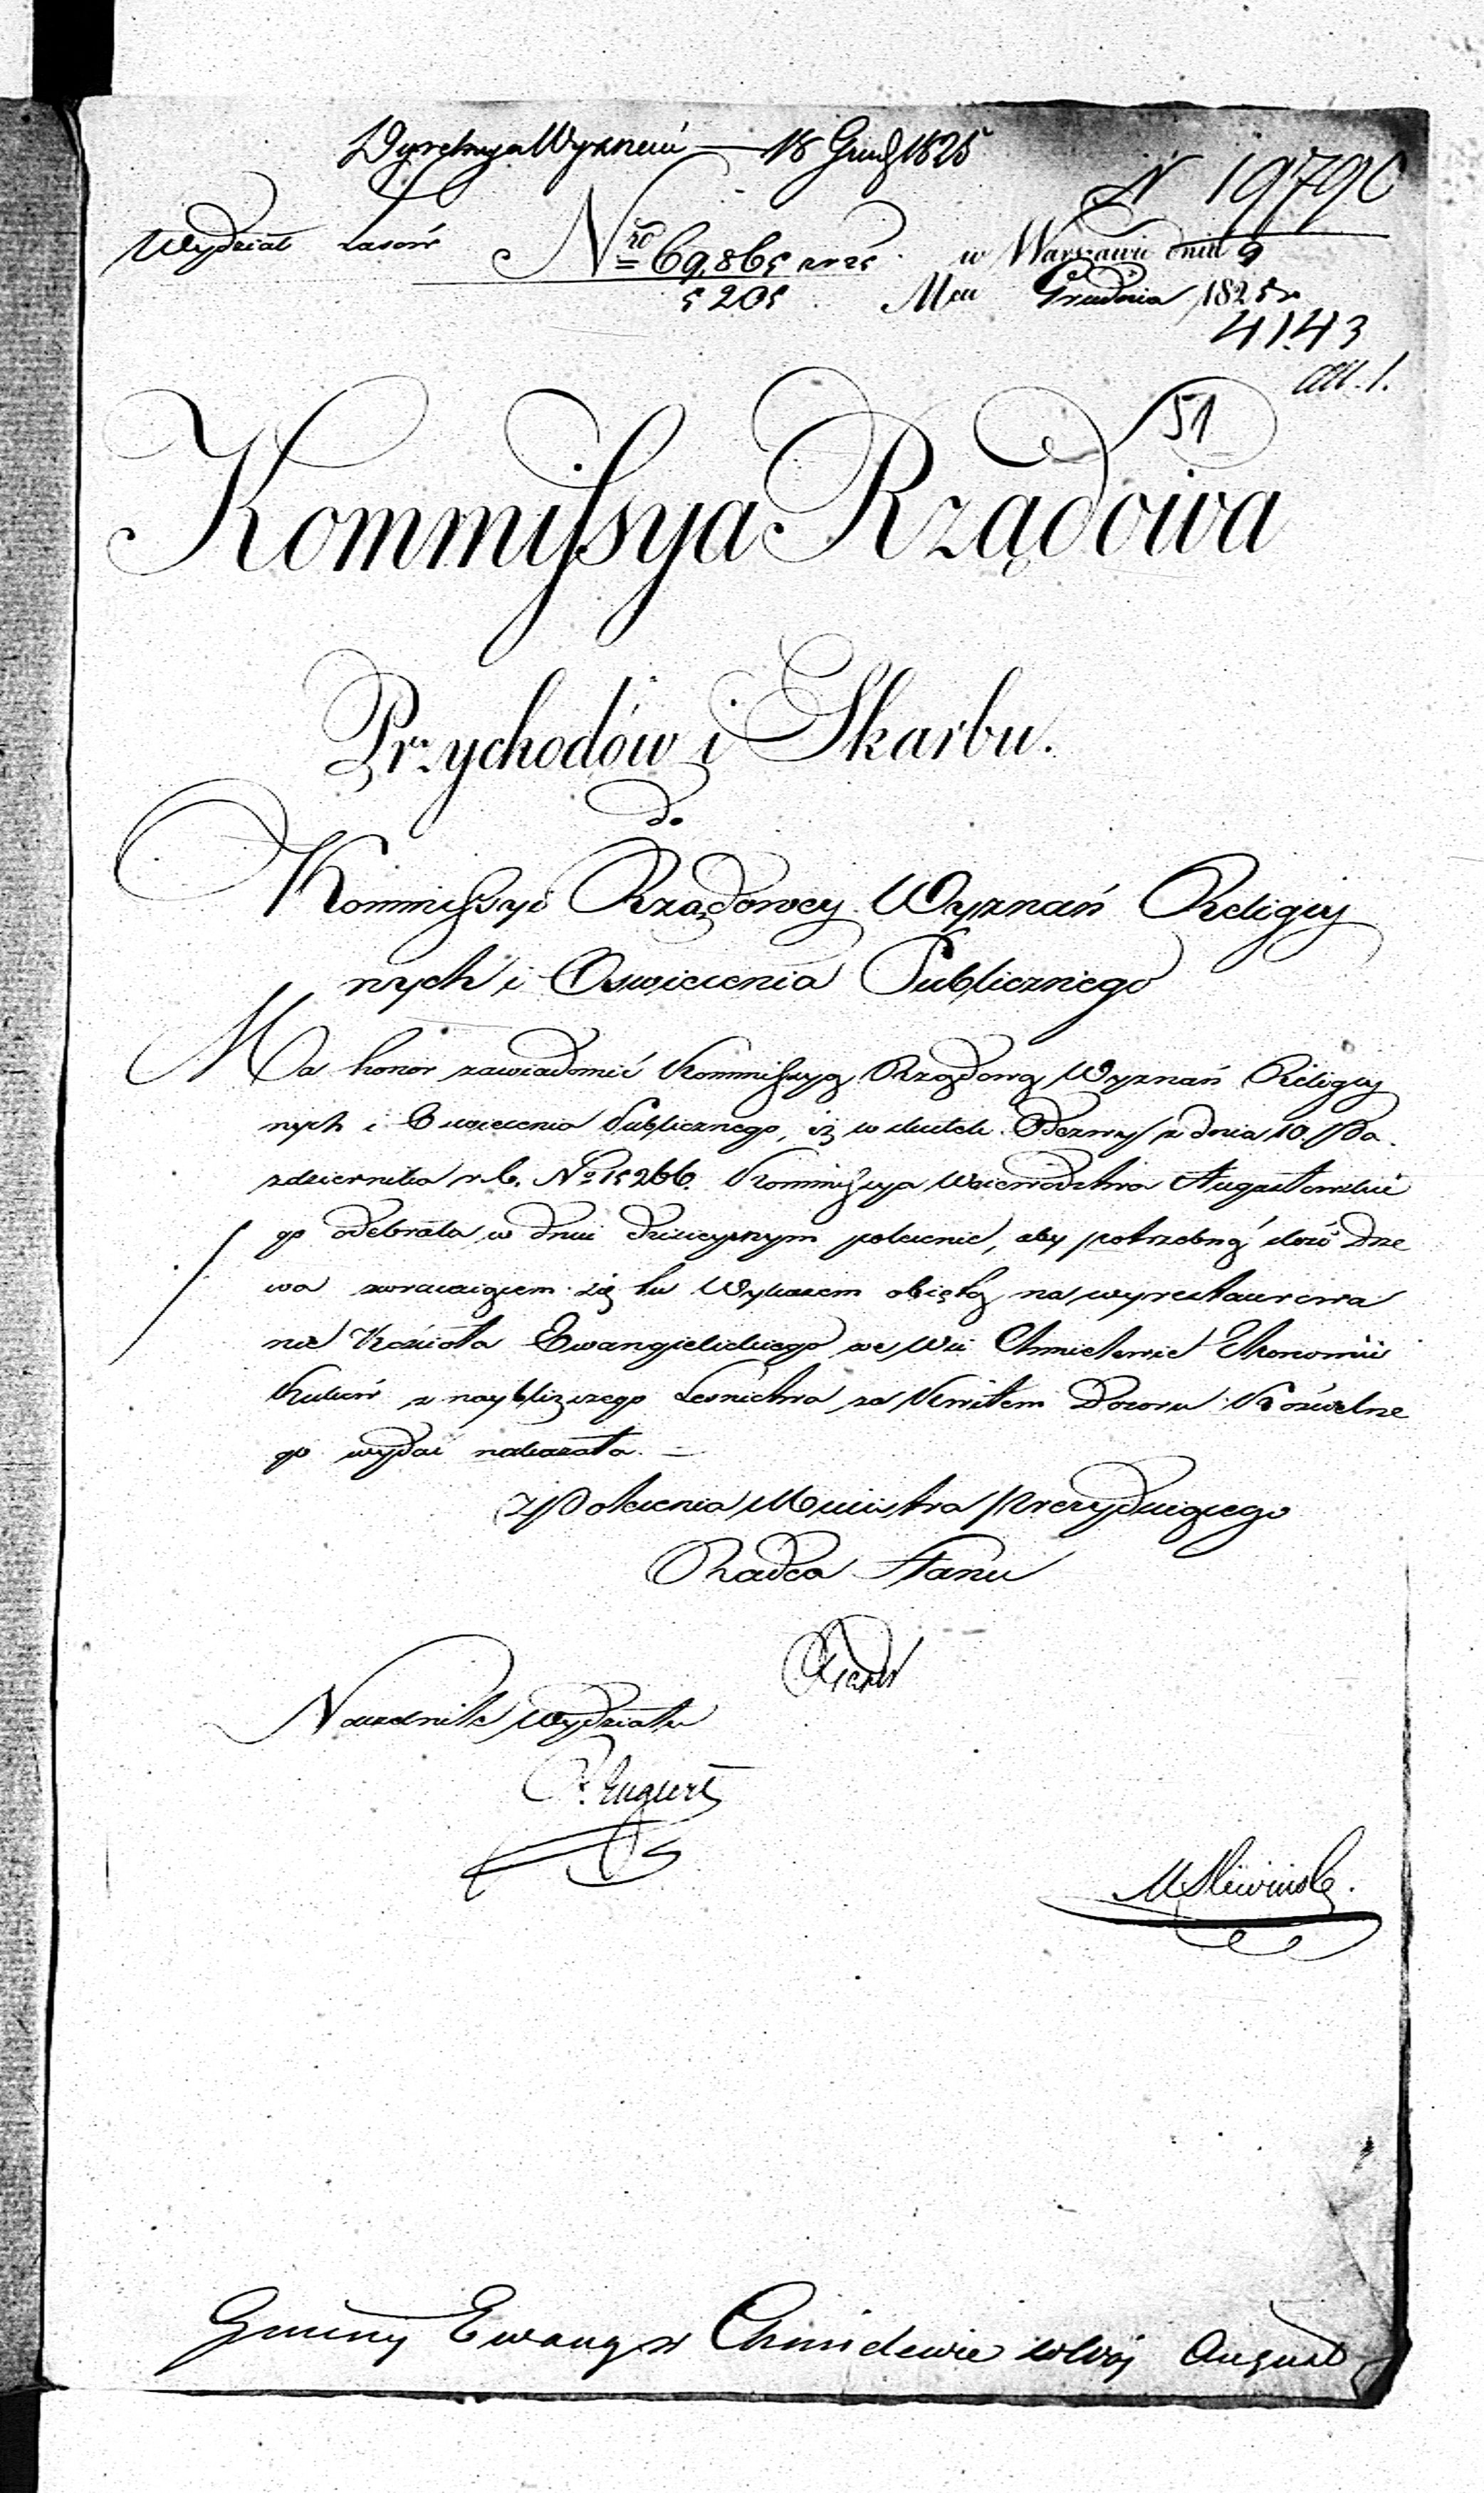 Dyrekcya Wyznań — 18 Grud 1825
N 19790
Wydział Lasów Nro 69,865 w Warszawie dnia 9
5205 Mca Grudnia 1825 r
4143
all. 1.
51
Kommissya Rządowa
Przychodów i Skarbu.
do
Kommissyi Rządowey Wyznań Religiy
nych i Oswiecenia Publicznego
Ma honor zawiadomić Kommissyą Rządową Wyznań Religiy
nych i Oswiecenia Publicznego, iż w skutek Odezwy z dnia 10. Pa
zdziernika r.b. No 15266. Kommissya Woiewodztwa Augustowskie
go odebrała w dniu dzisieyszym polecenie, aby potrzebną ilość Drze
wa zwracaiącem się tu Wykazem obiętą na wyrestaurowa
nie Kościoła Ewangielickiego we Wsi Chmielewie Ekonomii
Kuków z nayblizszego Lesnictwa za Kwitem Dozoru Kościelne
go wydać nakazała. —
z Polecenia Ministra Prezyduiącego
Radca Stanu
Naczelnik Wydziału
M Sliwinski.
Gminy Ewang w Chmielewie wWój August